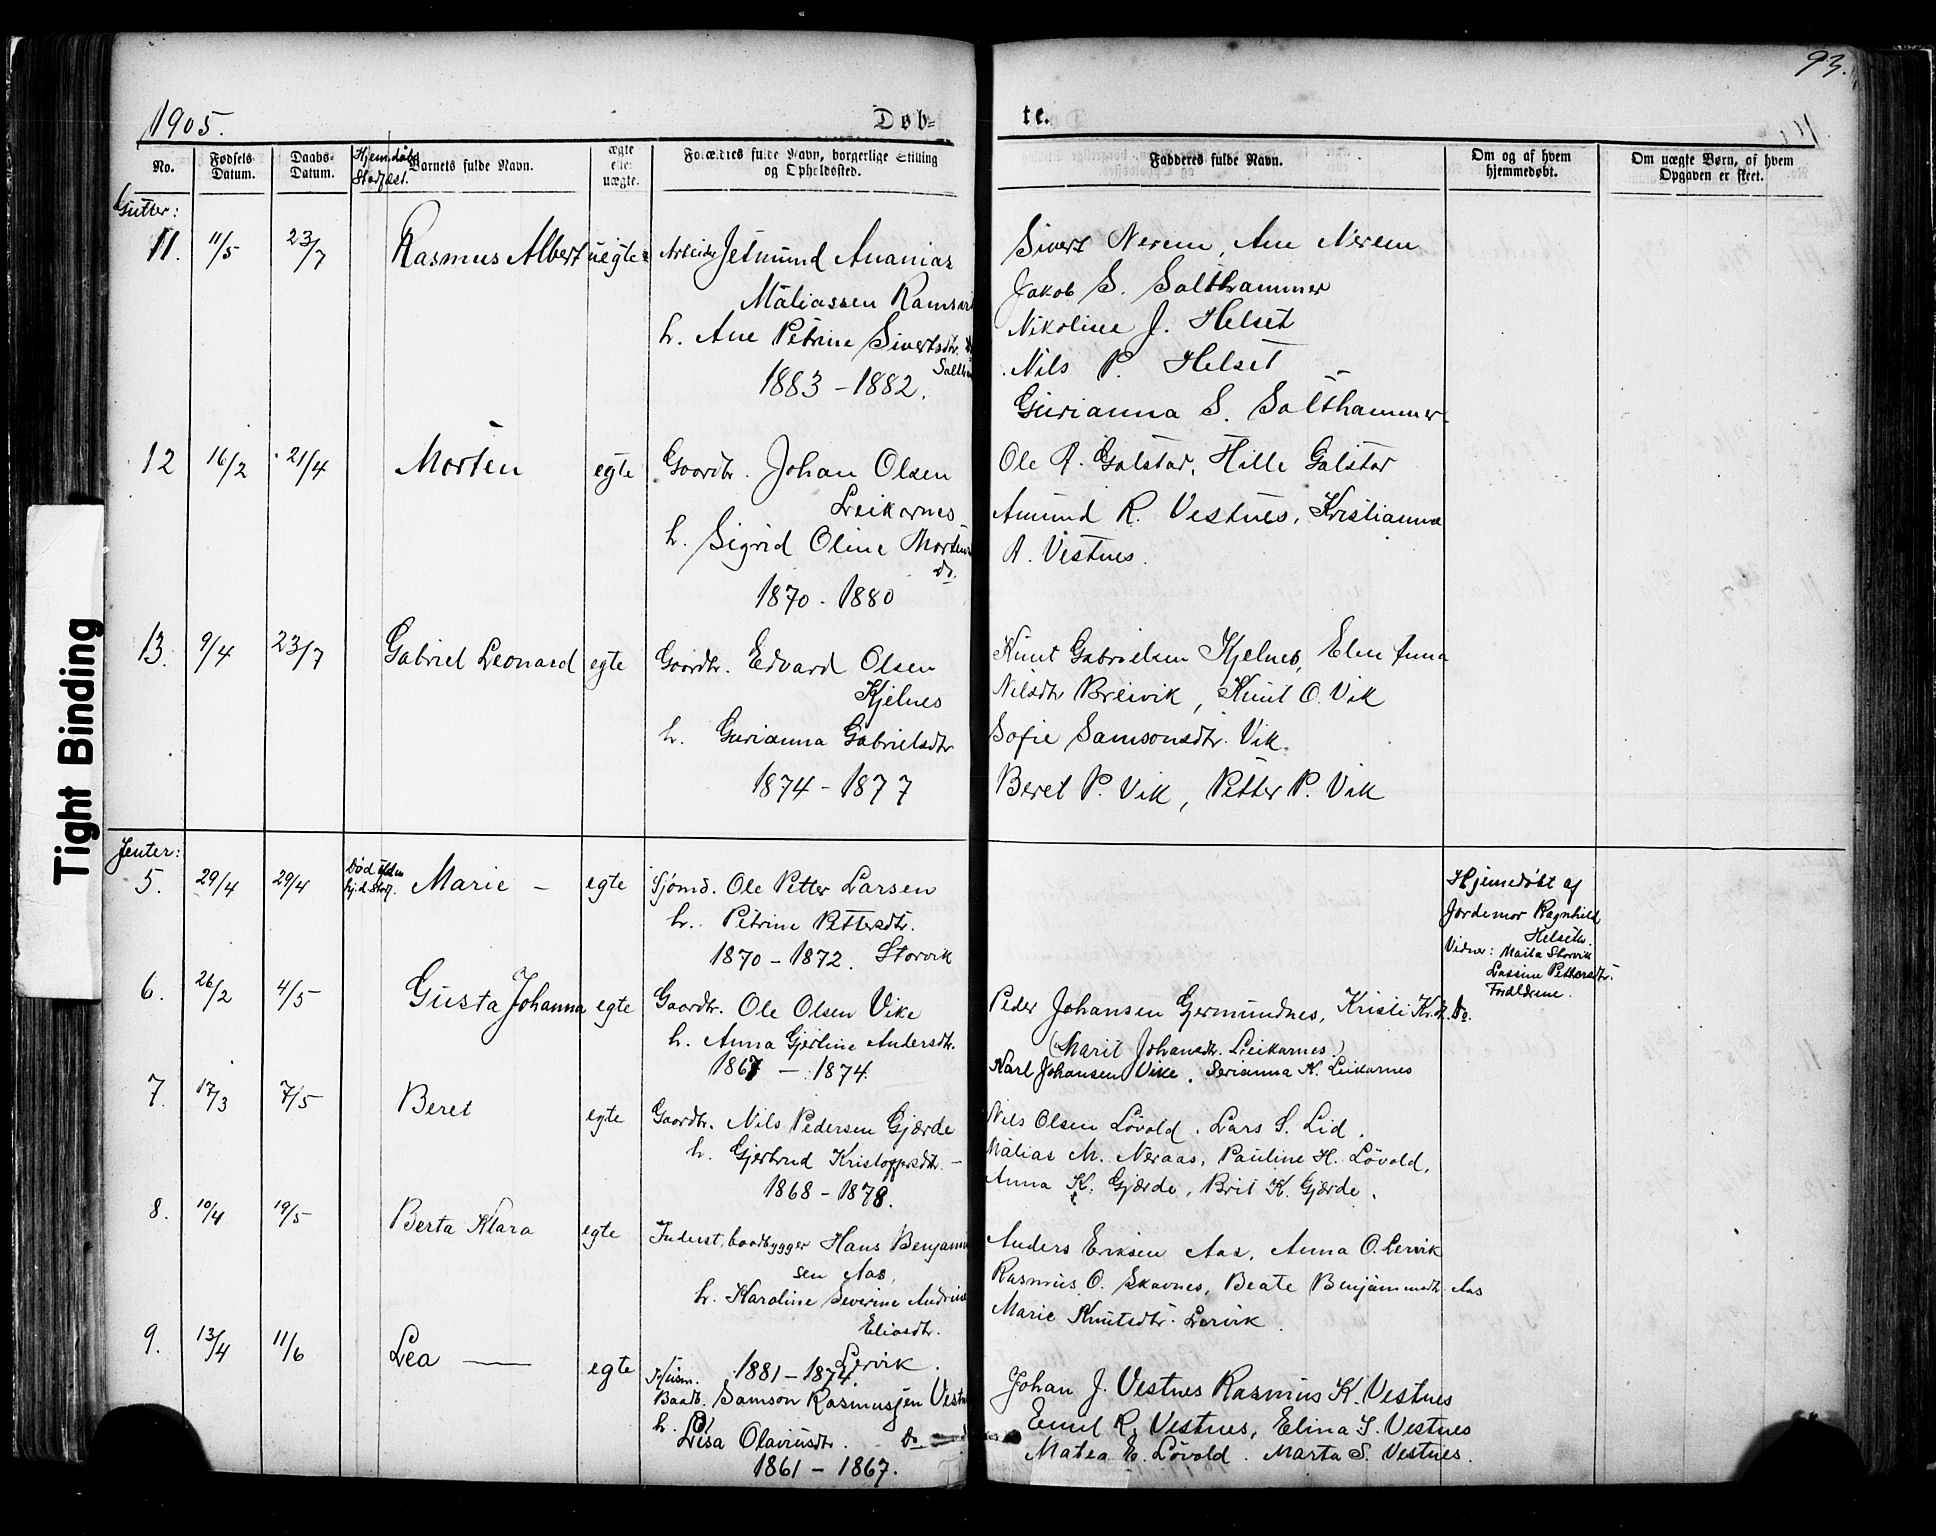 93.
1905.
Døb-
te.
No.
Fødsels Datum.
Daabs- Datum.
Hjemdøbt Stadfæst.
Barnets fulde Navn.
ægte eller uægte.
Forældres fulde Navn, borgerlige Stilling og Opholdssted.
Fadderes fulde Navn.
Om og af hvem hjemmedøbt.
Om uægte Børn, af hvem Opgaven er skeet.
Gutter:
11. 11/5 23/7 Rasmus Albert uegte
Arbeider Jetmund Ananias
Maliassen Ramsvik
h. Ane Petrine Sivertsdtr.
1883 - 1882.
Sivert Nerem, Ane Nerem
Jakob S. Salthammer
Nikoline J. Helset
Nils P. Helset
Gurianna S. Salthammer.
12 16/2 21/4 Morten egte
Gaardbr. Johan Olsen
Leikarnes
h. Sigrid Oline Mortens
do.
1870 - 1880
Ole A. Galstad, Hille Galstad
Amund R. Vestnes, Kristianna
A. Vestnes.
13. 9/4 23/7 Gabriel Leonard egte
Gaardbr. Edvard Olsen
Kjelnes
h. Gurianna Gabrielsdtr
1874 - 1877
Knut Gabrielsen Kjelnes, Elen Anna
Nilsdtr Breivik, Knut O. Vik
Sofie Samsonsdtr. Vik.
Beret P. Vik, Petter P. Vik
Jenter:
5. 29/4 29/4 Død uden hj.d. Stadf. Marie - egte
Sjømd. Ole Petter Larsen
h. Petrine Pettersdtr.
1870 - 1872. Storvik
Hjemedøbt af
Jordemor Ragnhild
Helseth.
Vidner: Maila Storvik
Lassine Pettersdtr.
Forældrene.
6. 26/2 4/5 Gusta Johanna egte
Gaardbr. Ole Olsen Vike
h. Anna Gjertine Andersdtr.
1867 - 1874.
Peder Johansen Gjermundnes, Kristi Kr.d. Do.
(Marit Johansdtr. Leikarnes)
Karl Johansen Vike. Serianna K. Leikarnes
7. 17/3 7/5 Beret egte
Gaardbr. Nils Pedersen Gjærde
h. Gjertrud Kristoffersdtr. -
1868 - 1878.
Nils Olsen Løvold. Lars S. Lid.
Malias M. Neraas, Pauline H. Løvold,
Anna K. Gjærde, Brit K. Gjærde.
8. 10/4 19/5 Berta Klara egte
Inderst, baadbygger Hans Benjamin
sen Aas,
h. Karoline Severine Andrine
Eliasdtr.
Lervik.
1881 - 1874.
Anders Eriksen Aas, Anna O. Lervik
Rasmus O. Skavnes, Beate Benjaminsdtr. Aas
Marie Knutsdtr. Lervik.
9. 13/4 11/6 Lea egte
Husm.
Baadb. Samson Rasmussen Vestnes
h. Lisa Olaviusdtr. Do
1861 - 1867.
Johan J. Vestnes Rasmus K. Vestnes
Emil R. Vestnes, Elina S. Vestnes
Matea E. Løvold. Marta S. Vestnes.
Tight Binding